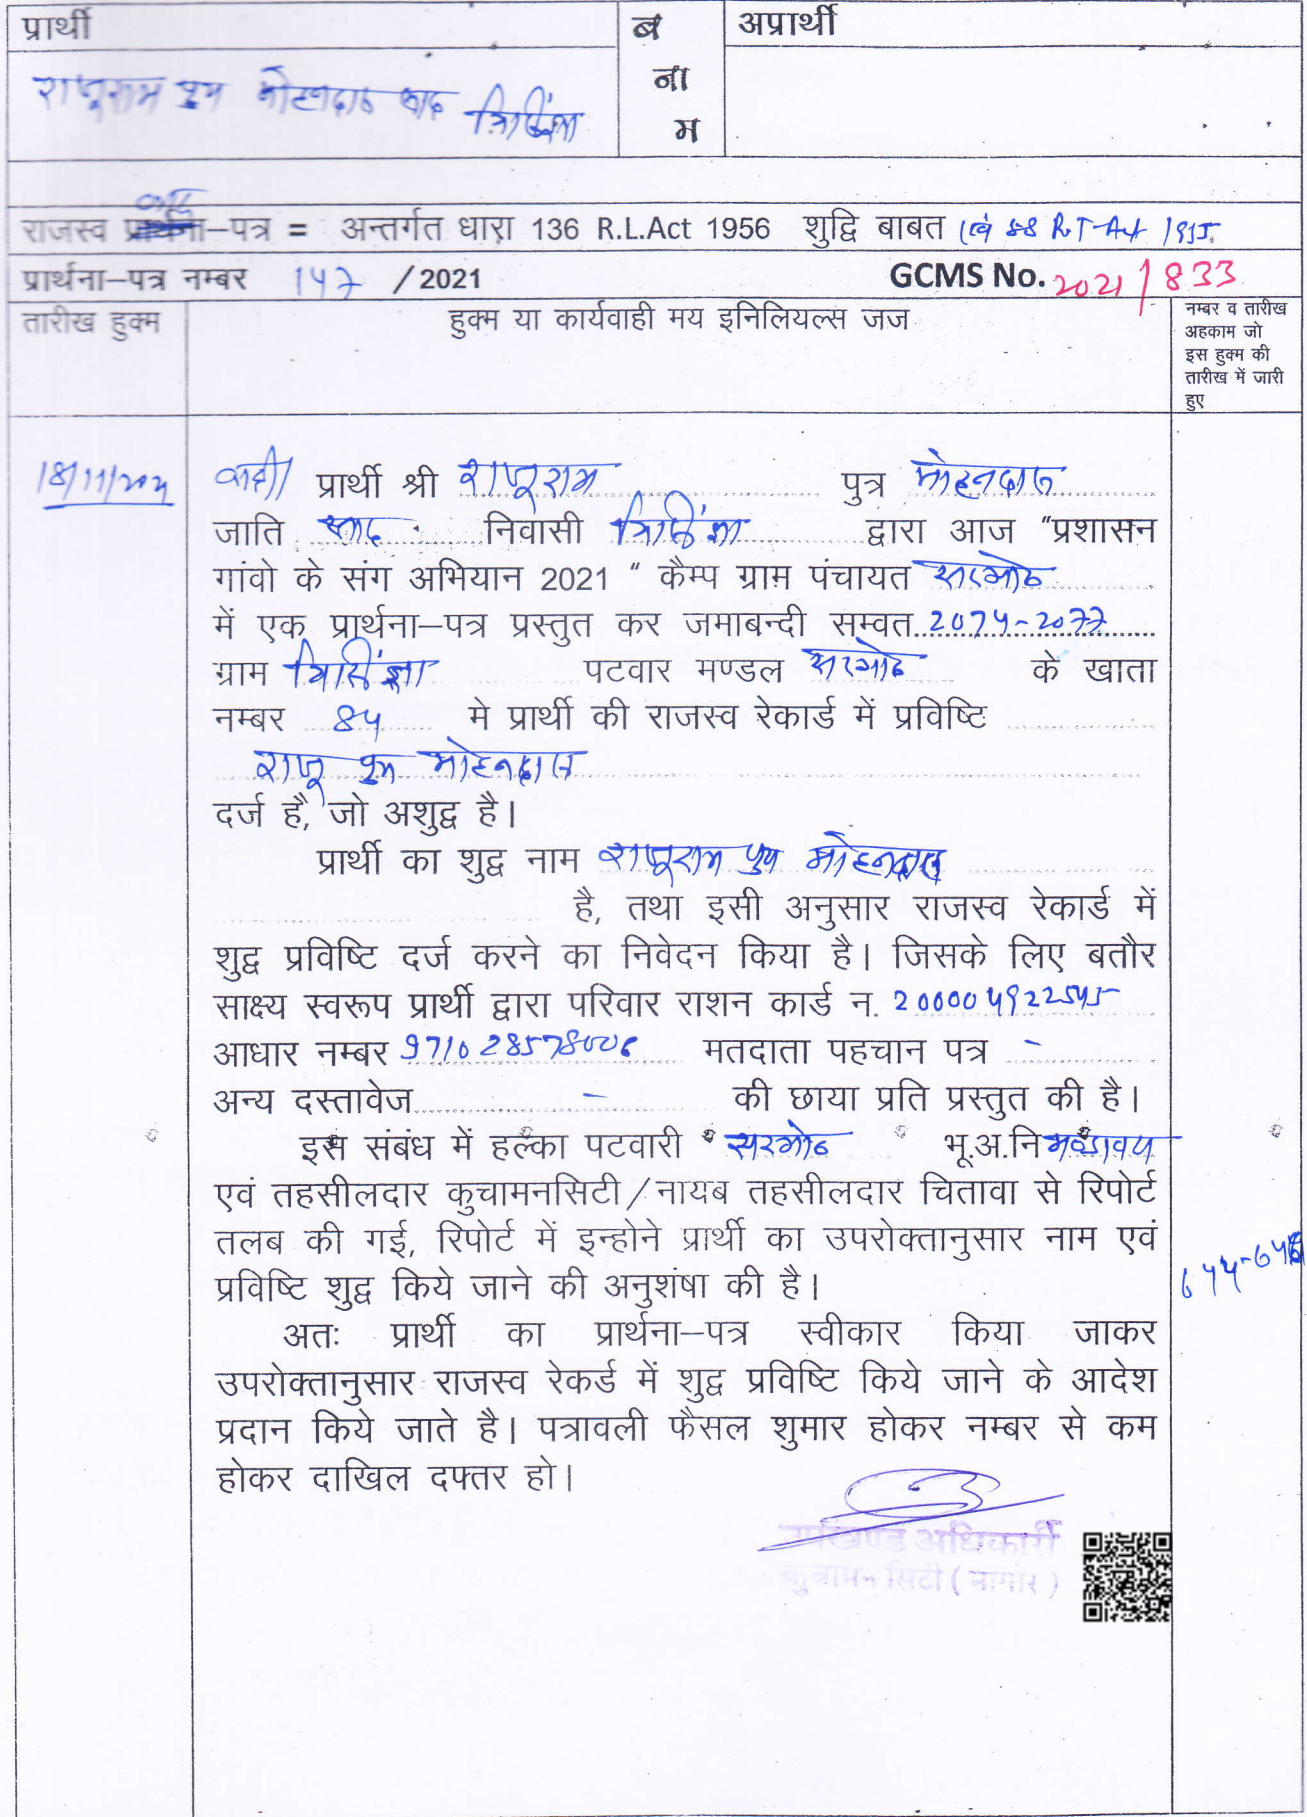 प्रार्थी
ब
ना
म
अप्रार्थी
राजूराम पुत्र मोहनदास स्वाद त्रिसिंज्ञा
वाद
राजस्व प्रार्थना–पत्र = अन्तर्गत धारा 136 R.L.Act 1956 शुद्वि बाबत एवं 88 R.T-Act 1955
प्रार्थना–पत्र नम्बर 147 /2021
GCMS No. 2021/833
तारीख हुक्म
हुक्म या कार्यवाही मय इनिलियल्स जज
नम्बर व तारीख
अहकाम जो
इस हुक्म की
तारीख में जारी
हुए
18/11/2021
प्रार्थी श्री राजूराम पुत्र मोहनदास
जाति निवासी त्रिसिंज्ञा द्वारा आज "प्रशासन
गांवो के संग अभियान 2021 " कैम्प ग्राम पंचायत सरगोठ
में एक प्रार्थना–पत्र प्रस्तुत कर जमाबन्दी सम्वत 2074-2077
ग्राम त्रिसिंज्ञा पटवार मण्डल सरगोठ के खाता
नम्बर 84 मे प्रार्थी की राजस्व रेकार्ड में प्रविष्टि
राजू पुत्र मोहनदास
दर्ज है, जो अशुद्व है।
प्रार्थी का शुद्व नाम राजूराम पुत्र मोहनदास
है, तथा इसी अनुसार राजस्व रेकार्ड में
शुद्व प्रविष्टि दर्ज करने का निवेदन किया है। जिसके लिए बतौर
साक्ष्य स्वरूप प्रार्थी द्वारा परिवार राशन कार्ड न. 200004922545
आधार नम्बर 971028578006 मतदाता पहचान पत्र -
अन्य दस्तावेज - की छाया प्रति प्रस्तुत की है।
इस संबंध में हल्का पटवारी सरगोठ भू.अ.नि
एवं तहसीलदार कुचामनसिटी/नायब तहसीलदार चितावा से रिपोर्ट
तलब की गई, रिपोर्ट में इन्होने प्रार्थी का उपरोक्तानुसार नाम एवं
प्रविष्टि शुद्व किये जाने की अनुशंषा की है।
644-646
अतः प्रार्थी का प्रार्थना–पत्र स्वीकार किया जाकर
उपरोक्तानुसार राजस्व रेकर्ड में शुद्व प्रविष्टि किये जाने के आदेश
प्रदान किये जाते है। पत्रावली फैसल शुमार होकर नम्बर से कम
होकर दाखिल दफ्तर हो।
उपखण्ड अधिकारी
कुचामन सिटी ( नागौर )